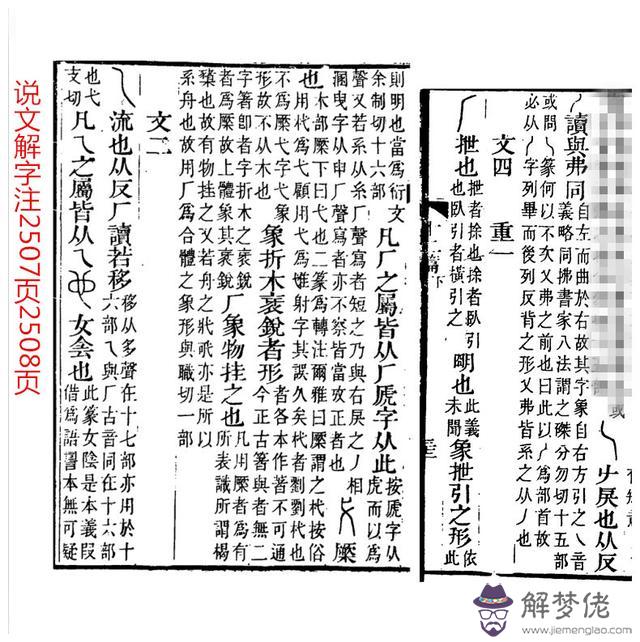 ナ戾也从反
乀讀與弗同自左而曲於右故其字象自右方引之乀音
義略同拂書家八法謂之磔分勿切十五部
或問乀篆何以不次乂弗之前也曰此以乀爲部首故
必从丿字列畢而後列反背之形乂弗皆系之从丿也
文四 重一
抴也抴者捈也捈者臥引
也臥引者橫引之明也此義
未聞象抴引之形依
此
十二篇下
則明也當爲衍文
余制切十六部凡厂之屬皆从厂虒字从此按虒字从
虎而以爲
聲又若系从糸厂聲寫者短之乃與右戾之丿相
溷曳字从申厂聲寫者亦不察皆當攷正者弋橜
也木部橜下曰弋也二篆爲轉注爾雅曰橜謂之杙按俗
用杙爲弋顧用弋爲雉射字其誤久矣杙者劉劉杙也
不爲橜弋字弋象
形故不从木也象折木衺銳者形者各本作著不可通
今正古箸與者無二
字箸卽者字折木之衺銳
者爲橜故上體象其衺銳厂象物挂之也凡用橜者爲有
所表識所謂楬
橥也故有物挂之又若舟之杙杙亦是所以
系舟也故用厂爲合體之象形與職切一部
文二
乁流也从反厂讀若移移从多聲在十七部亦用於十
六部乁與厂古音同在十六部
也弋
支切凡乁之屬皆从乁女侌也此篆女陰是本義叚
借爲語䛐本無可疑
说文解字注2507页2508页
解梦佬
www.jiemengliao.com